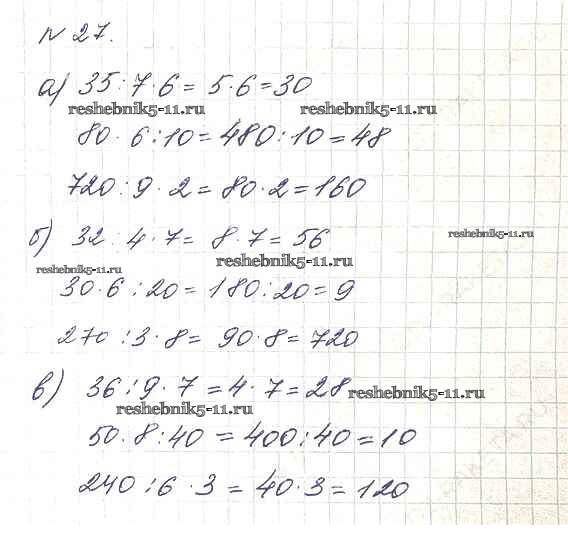 № 27.
а) 35 : 7 · 6 = 5 · 6 = 30
reshebnik5-11.ru reshebnik5-11.ru
80 · 6 : 10 = 480 : 10 = 48
720 : 9 · 2 = 80 · 2 = 160
б) 32 : 4 · 7 = 8 · 7 = 56
reshebnik5-11.ru
reshebnik5-11.ru
reshebnik5-11.ru
30 · 6 : 20 = 180 : 20 = 9
270 : 3 · 8 = 90 · 8 = 720
в) 36 : 9 · 7 = 4 · 7 = 28
reshebnik5-11.ru
reshebnik5-11.ru
50 · 8 : 40 = 400 : 40 = 10
240 : 6 · 3 = 40 · 3 = 120